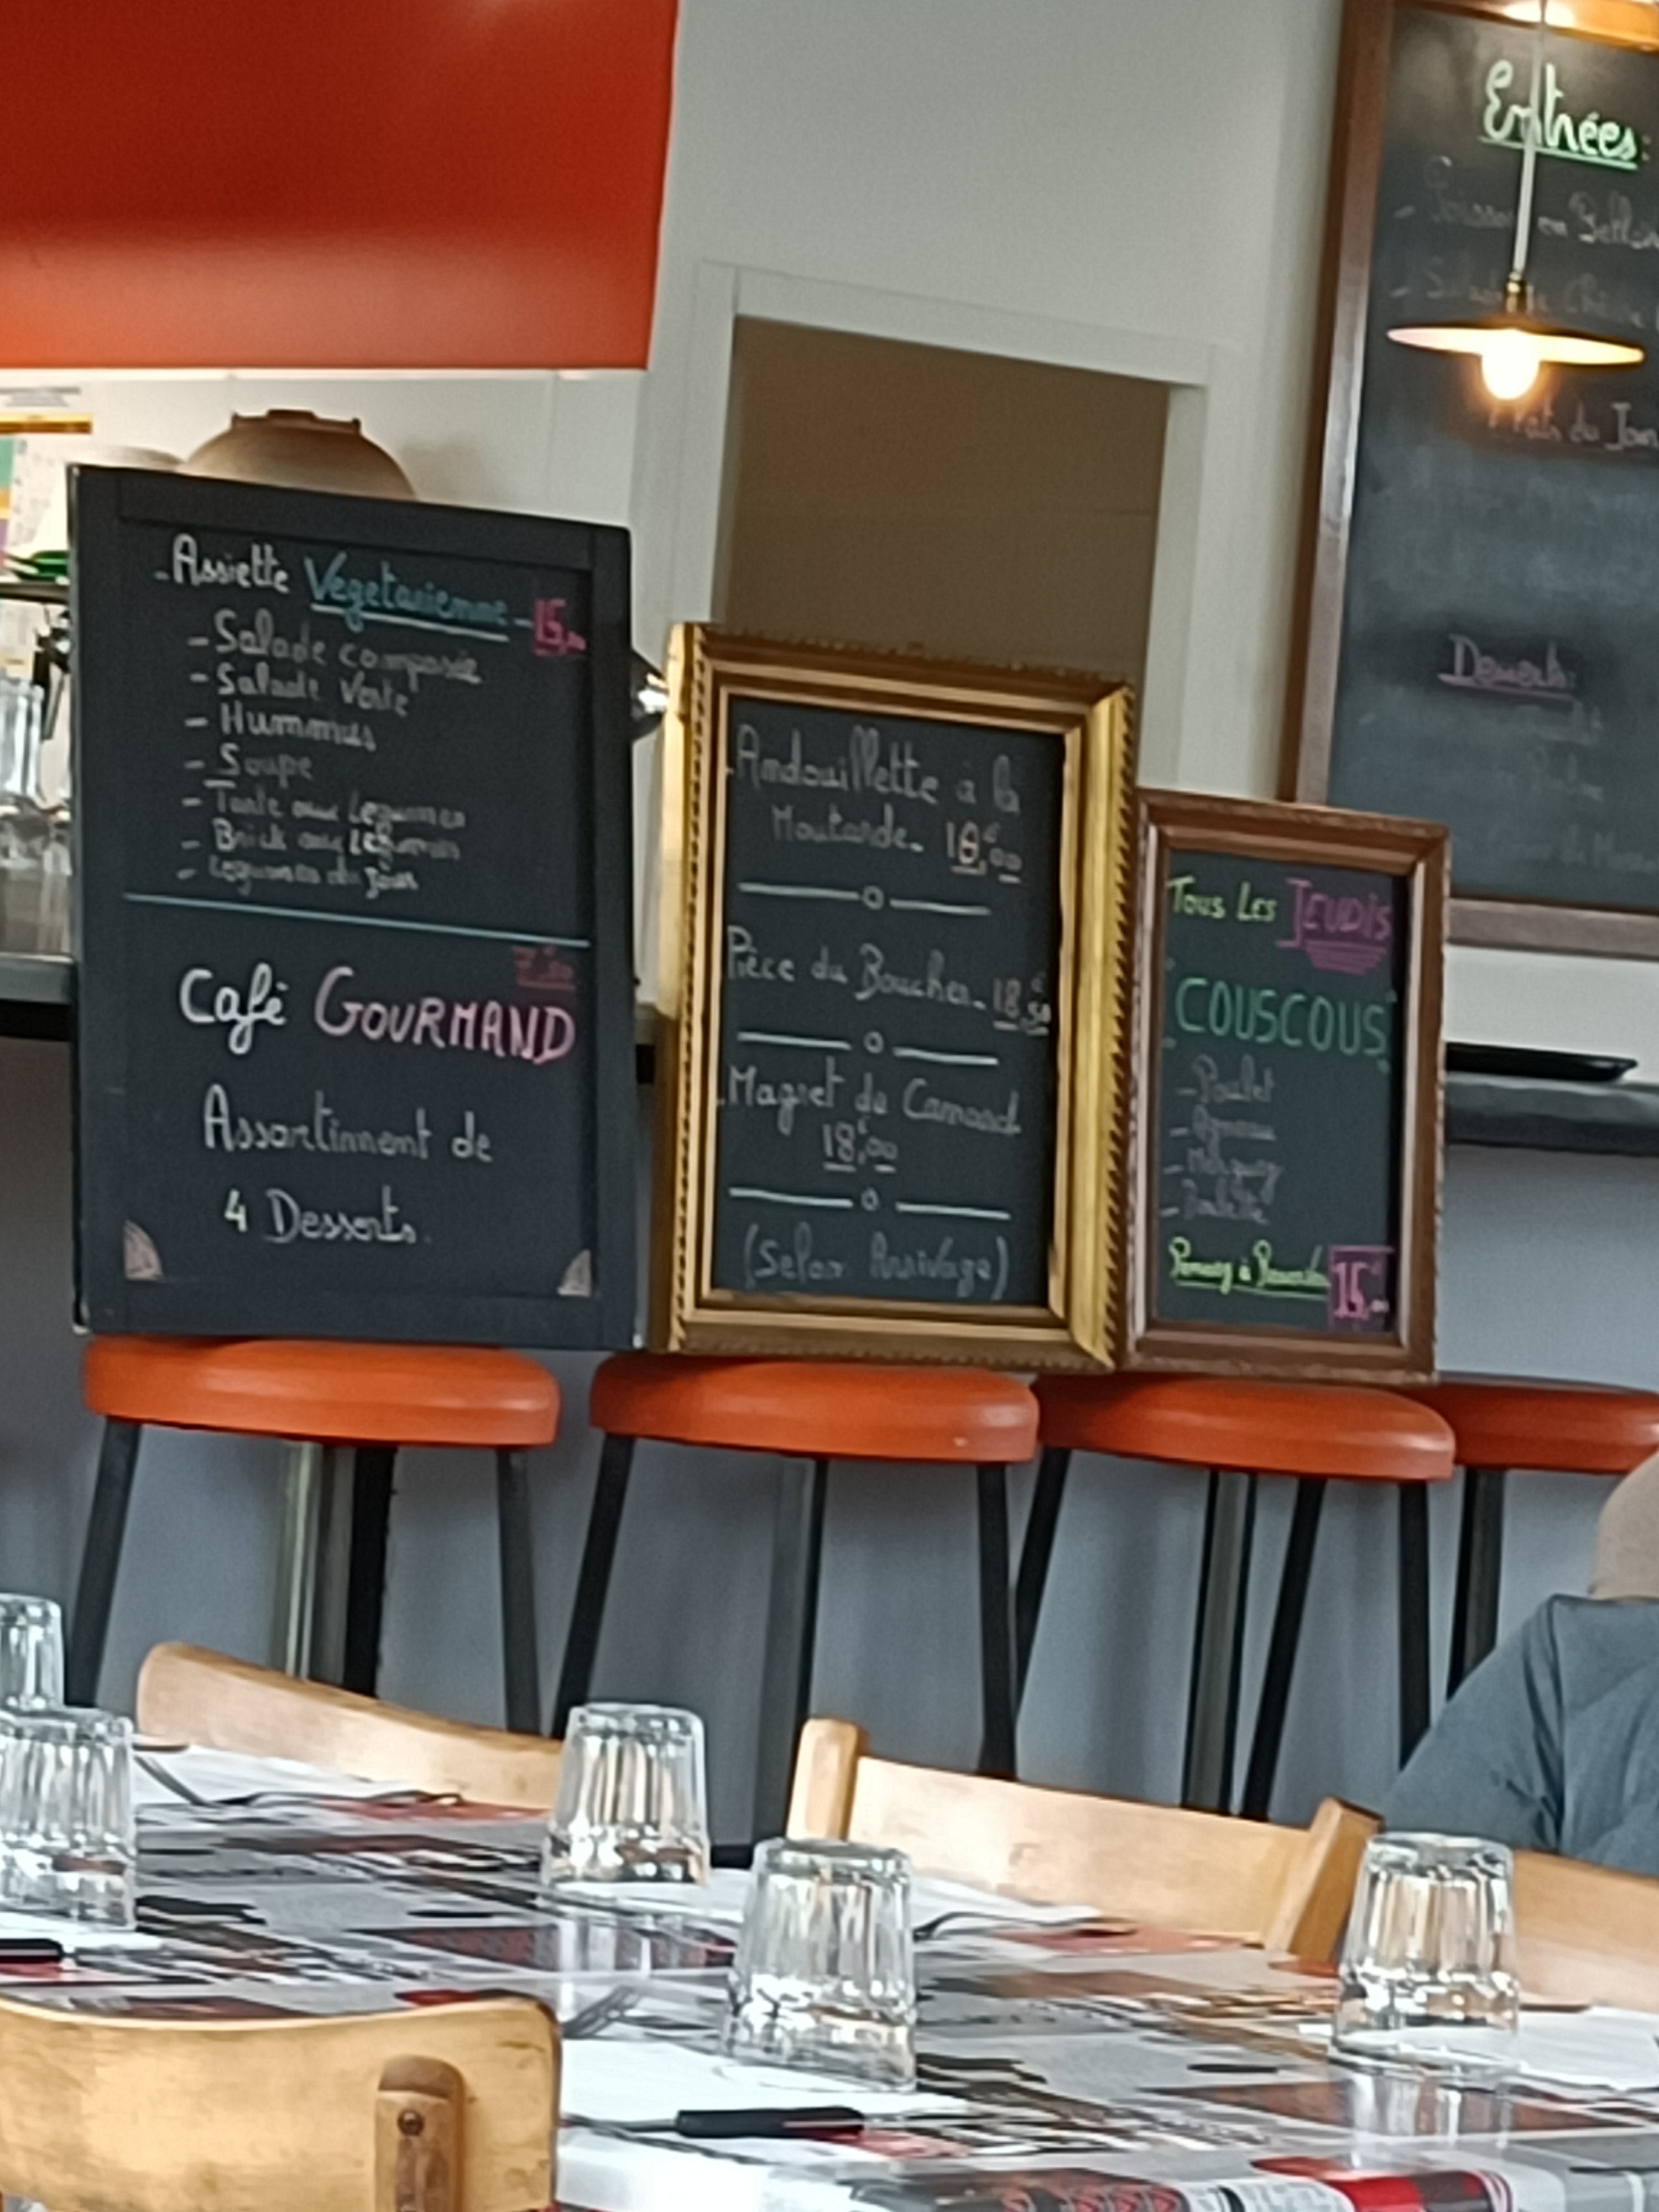 - Assiette Végétarienne - 15,00
- Salade composée
- Salade Verte
- Hummus
- Soupe
- Tarte aux Légumes
- Brick aux Légumes
- Légumes du jour
Café GOURMAND
Assortiment de
4 Desserts.
- Andouillette à la
Moutarde - 18,€00
Pièce du Boucher - 18,€50
- Magret de Canard
18,€00
(Selon Arrivage)
Tous Les JEUDIS
"COUSCOUS"
- Poulet
- Agneau
- Merguez
- Boulette
15,€00
Entrées:
en
- Salade de Chèvre
Plats du Jour
Desserts: